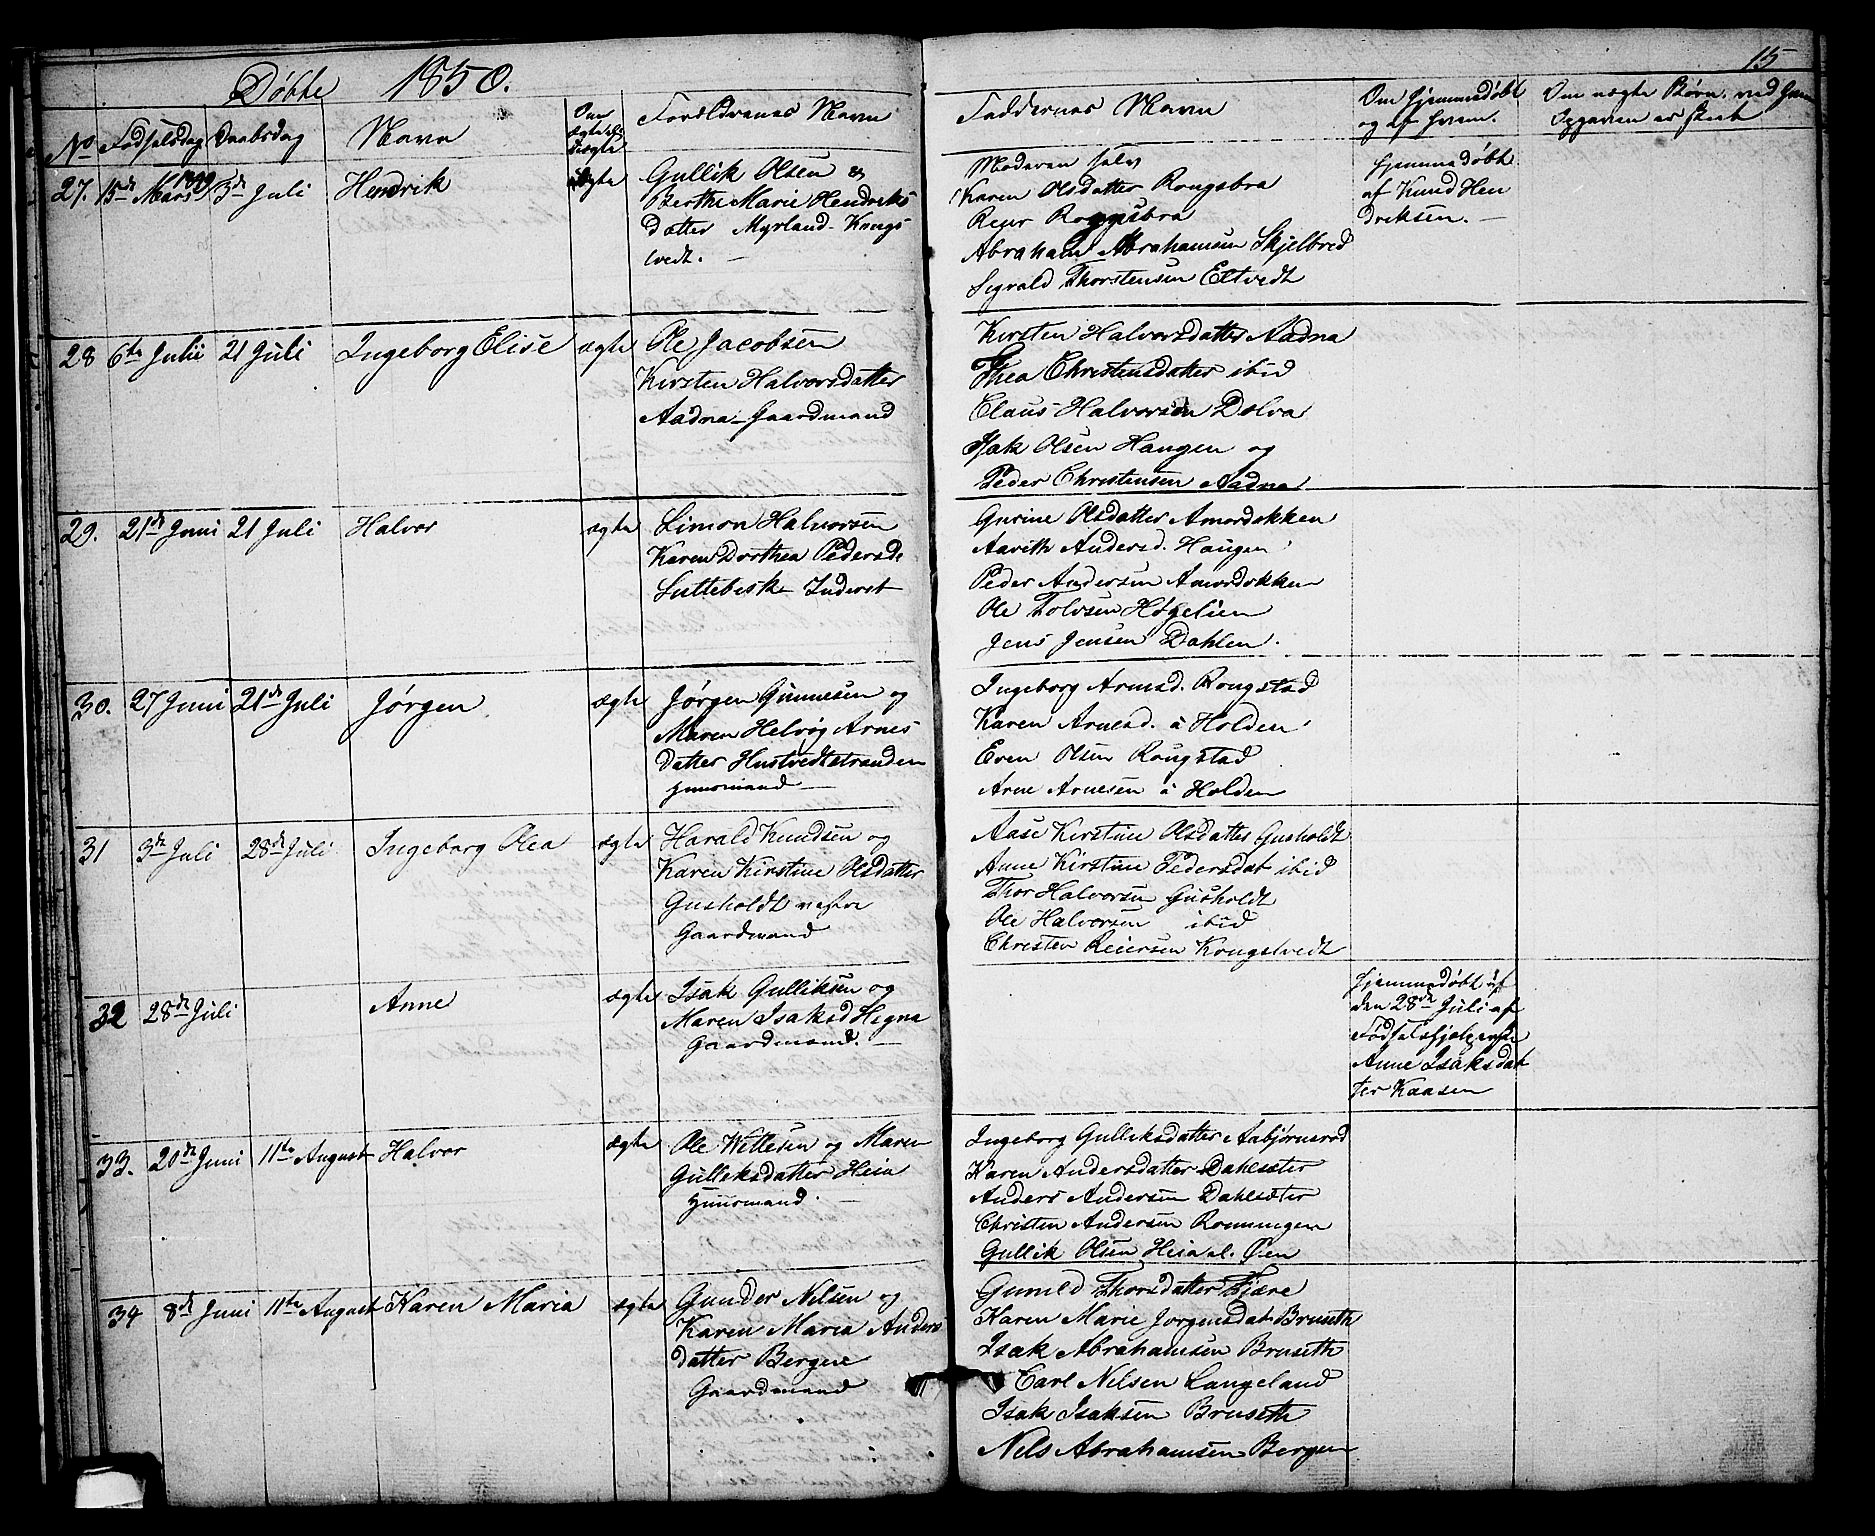 Døbte 1850.
15
No Fødselsdag Daabsdag Navn Om ægte el. uægte Forældrenes Navn Faddernes Navn Om hjemmedøbt og af hvem. Om uægte Børn, ved
Opgaven er skeet
27. 15de Mars 3de Juli Hendrik ægte Gullik Olsen &
Berthe Marie Hendriks
Datter Myrland Kongs
tvedt. —
Moderen selv
Karen Olsdatter Rongsbra
Reyer
Abraham Abrahamsen Skjelbred
Sigvald Thorstensen Eltvedt
hjemmedøbt
af Knud Hen
driksen. —
28 6te Julii 21 Juli Ingeborg Elise ægte Ole Jacobsen
Kirsten Halvorsdatter
Aadna Gaardmand
Kirsten Halvorsdatter Aadna
Thea Christensdatter ibid
Claus Halvorsen Dolva
Isak Olsen Haugen og
Peder Christensen Aadna
29. 21de Juni 21 Juli Halvor ægte Simon Halvorsen
Karen Dorthea Pedersd.
Luttebesk Inderst
Gurine Olsdatter Amordokken
Aarith Andersd. Haugen
Peder Andersen Amordokken
Ole Tolvsen Høgelien
Jens Jensen Dahlen.
30. 27 Juni 21de Juli Jørgen ægte Jørgen Gunnesen og
Maren Helvig Arnes
datter Hustvedtstranden
Huusmand —
Ingeborg Arnesd. Rougstad
Karen Arnesd. à Holden
Even Olsen Rougstad
Arne Arnesen à Holden
31 3de Juli 28de Juli Ingeborg Olea ægte Harald Knudsen og
Karen Kirstine Olsdatter
Gusholdt vestre
Gaardmand
Aase Kirstine Olsdatter Gusholdt
Anne Kirstine Pedersdat ibid
Thor Halvorsen Gusholdt
Ole Halvorsen ibid
Christen Reiersen Kongstvedt
32 28de Juli Anne ægte Isak Gulliksen og
Maren Isaksd Hegna
Gaardmand. —
hjemmedøbt
den 28de Juli af
Fødselshjelperske
Anne Isaksdat
ter Kaasen
33. 20de Juni 11te August Halvor ægte Ole Wetlesen og Maren
Gulleksdatter Heia
Huusmand. —
Ingeborg Gulliksdatter Aabjørnsrød
Karen Andersdatter Dahlsæter
Anders Andersen Dahlsæter
Christen Andersen Ronningen
Gullik Olsen Heia el. Øen
34 8de Juni 11te August Karen Maria ægte Gunder Nilsen og
Karen Maria Anders
datter Bergene
Gaardmand
Gunild Thorsdatter Fjære
Karen Marie Jorgensdat Bruseth
Isak Abrahamsen Bruseth
Carl Nilsen Langeland
Isak Isaksen Bruseth
Nels Abrahamsen Bergen